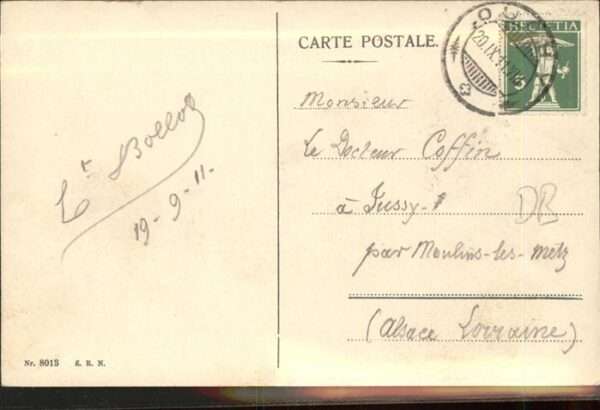 CARTE POSTALE.
HELVETIA
5
20.IX.11
Monsieur
Le Docteur Coffin
à Jussy
par Moulins-les-Metz
(Alsace Lorraine)
DR
19-9-11.
Nr. 8013 E. R. N.